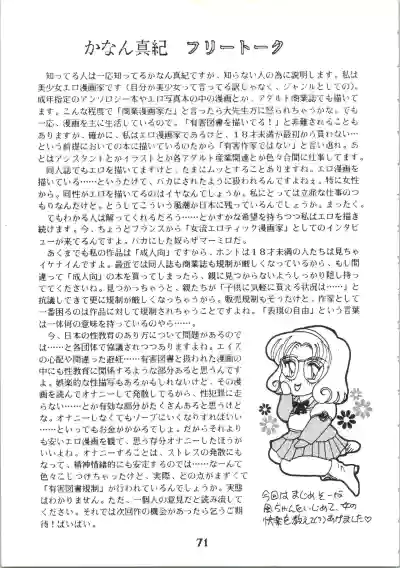 かなん真紀　フリートーク
知ってる人は一応知ってるかなん真紀ですが、知らない人の為に説明します。私は
美少女エロ漫画家です（自分が美少女って言ってる訳じゃなく、ジャンルとしての）。
成年指定のアンソロジー本やエロ写真本の中の漫画とか、アダルト商業誌でも描いて
ます。こんな程度で「商業漫画家だ」と言ったら大先生方に怒られちゃうかな。でも
一応、漫画を主に生活しているので。「有害図書を描いてる！」と非難されることも
ありますが、確かに、私はエロ漫画家であるけど、１８才未満が最初から買わない…
という前提においての本に描いているのだから「有害作家ではない」と言い逃れ。あ
とはアシスタントとかイラストとか各アダルト産業関連とか色々合間に仕事してます。
同人誌でもエロを描いてますけど、たまにムッとすることありますね。エロ漫画を
描いている……というだけで、バカにされたように扱われるんですよねぇ。特に女性
から。同性がエロを描いてるのはイヤなんでしょうか。私にとっては立派な仕事のつ
もりなんだけど。どうしてこういう風潮が日本に残っているんでしょうか。まったく。
でもわかる人は解ってくれるだろう……とかすかな希望を持ちつつ私はエロを描き
続けます。今、ちょうどフランスから「女流エロティック漫画家」としてのインタビ
ューが来てるんですよ。バカにした奴らザマーミロだ。
あくまでも私の作品は「成人向」ですから、ホントは１８才未満の人たちは見ちゃ
イケナイんですよ。最近では同人誌も商業誌も規制が厳しくなっているから、もし間
違って「成人向」の本を買ってしまったら、親に見つからないようしっかり隠し持っ
ててくださいね。見つかっちゃうと、親たちが「子供に気軽に買える状況は……」と
抗議してきて更に規制が厳しくなっちゃうから。販売規制もそうだけど、作家として
一番困るのは作品に対して規制されちゃうことですよね。「表現の自由」という言葉
は一体何の意味を持っているのやら……。
今、日本の性教育のあり方について問題があるので
は……と各団体で協議されつつありますよね。エイズ
の心配や間違った避妊……有害図書と扱われた漫画の
中にも性教育に関係するような部分あると思うんです
よ。娯楽的な性描写もあるかもしれないけど、その漫
画を読んでオナニーして発散してるから、性犯罪に走
らない……とか有効な部分がたくさんあると思うけど
な。オナニーしなくてもソープにいくなりすればいい
……といってもお金がかかるでしょ。だからそれより
も安いエロ漫画を観て、思う存分オナニーしたほうが
いいよね。オナニーすることは、ストレスの発散にも
なって、精神情緒的にも安定するのでは……なーんて
色々こじつけちゃったけど、実際、どの点がまずくて
「有害図書規制」が行われているんでしょうか。実態
はわかりません。ただ、一個人の意見だと読み流して
ください。それでは次回作の機会があったら乞うご期
待！ばいばい。
今回はまじめそーな
子ちゃんをいじめて、女の
快楽を教えてつあげました♡
71